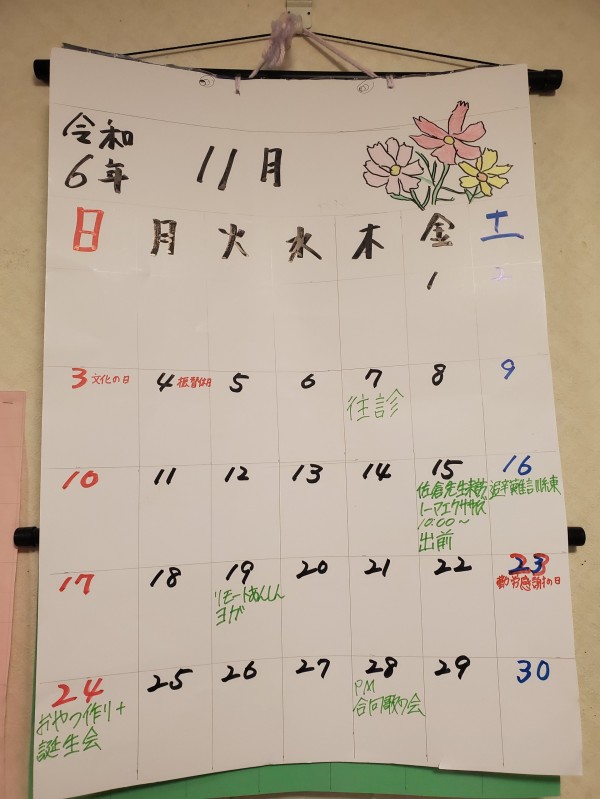 令和
6年 11月
日 月 火 水 木 金 土
1 2
3 文化の日 4 振替休日 5 6 7 8 9
往診
10 11 12 13 14 15 16
佐倉先生 避難訓練
10:00～
出前
17 18 19 20 21 22 23
勤労感謝の日
リモートあんしん
ヨガ
24 25 26 27 28 29 30
おやつ作り+
誕生会
PM
合同歌の会